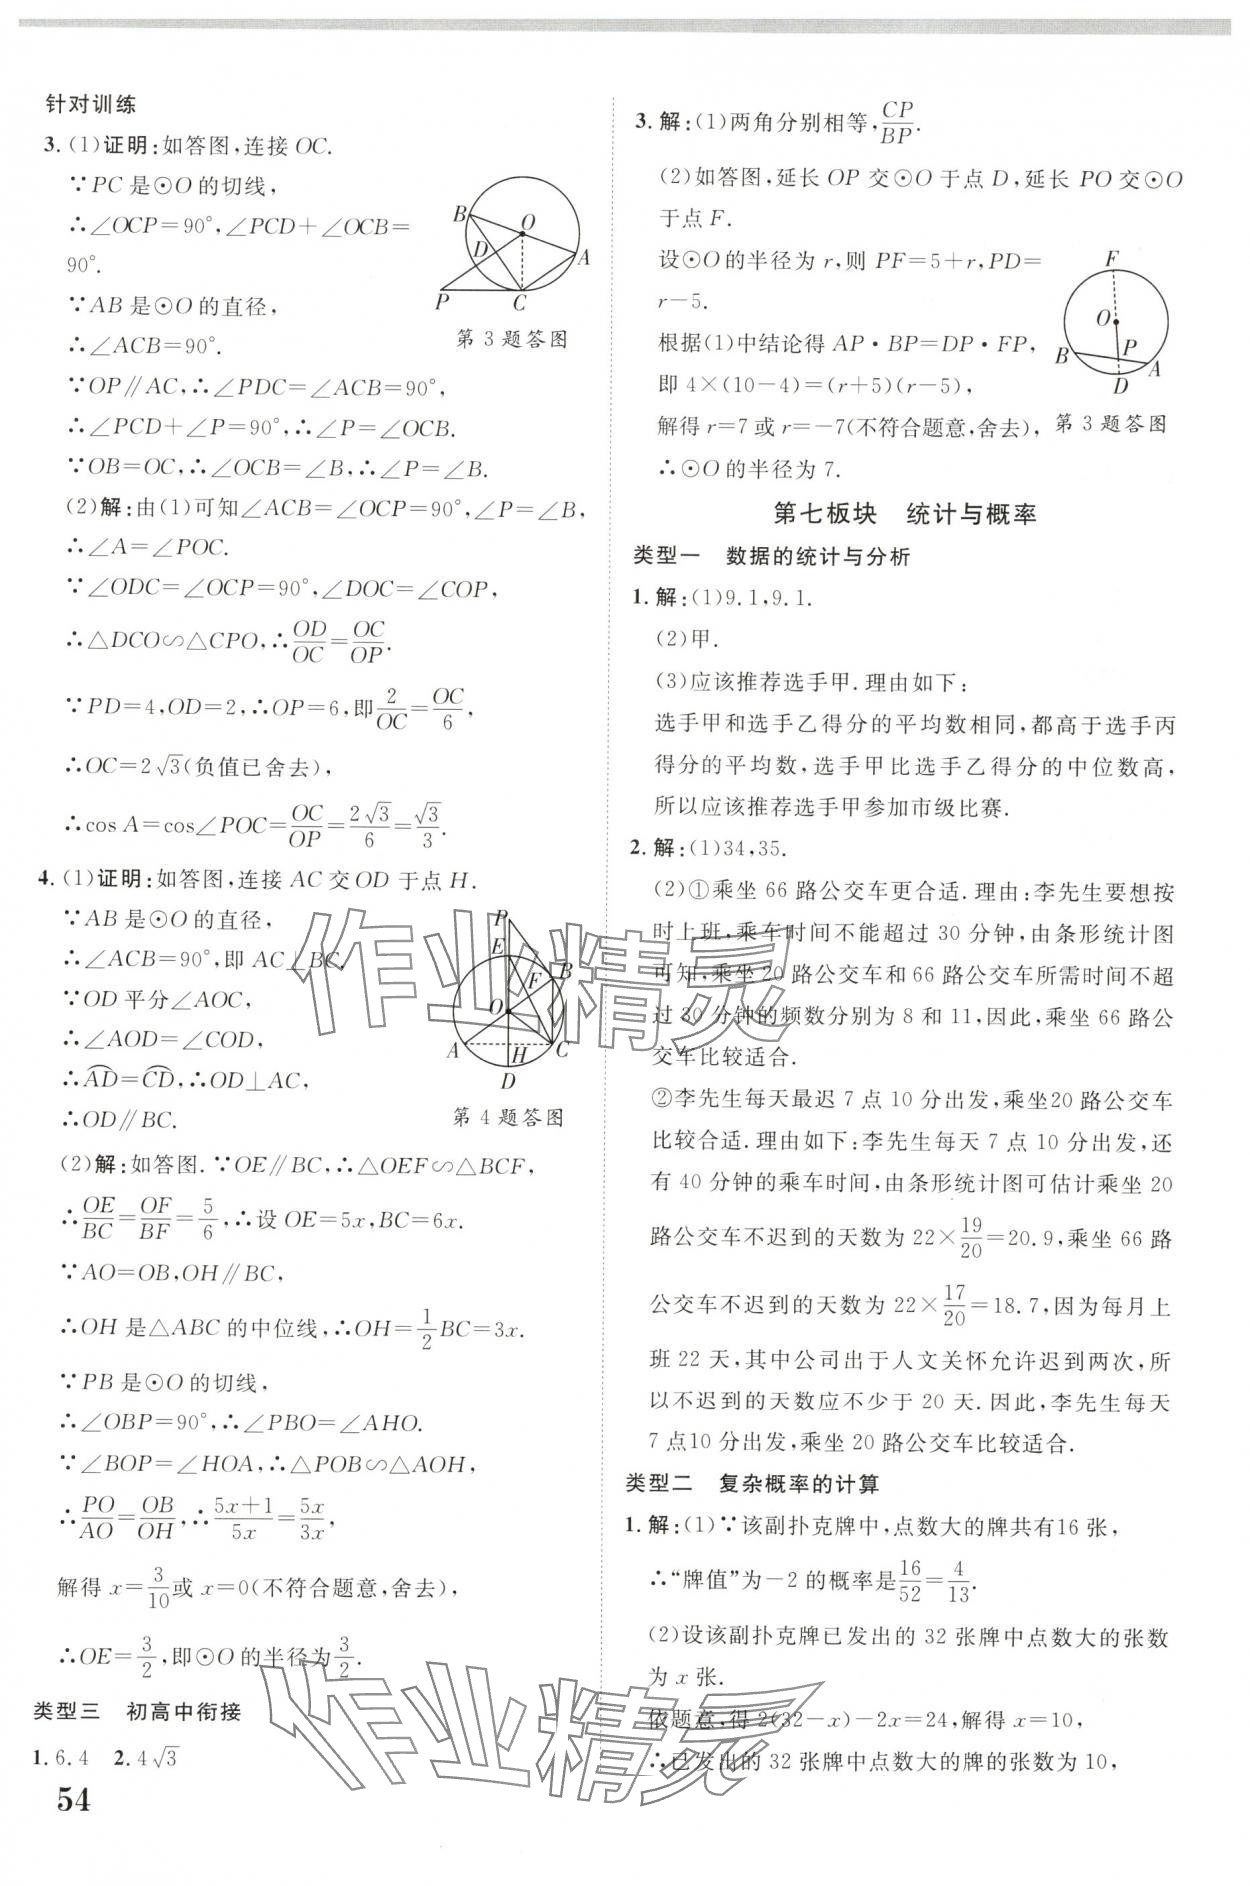 针对训练
3. (1)证明:如答图,连接 OC.
∵PC 是⊙O 的切线,
∴∠OCP=90°,∠PCD+∠OCB=
90°.
∵AB 是⊙O 的直径,
∴∠ACB=90°.
∵OP∥AC,∴∠PDC=∠ACB=90°,
∴∠PCD+∠P=90°,∴∠P=∠OCB.
∵OB=OC,∴∠OCB=∠B,∴∠P=∠B.
B O D A P C
第 3 题答图
(2)解:由(1)可知∠ACB=∠OCP=90°,∠P=∠B,
∴∠A=∠POC.
∵∠ODC=∠OCP=90°,∠DOC=∠COP,
∴△DCO∽△CPO,∴OD/OC=OC/OP.
∵PD=4,OD=2,∴OP=6,即2/OC=OC/6,
∴OC=2√3(负值已舍去),
∴cos A=cos∠POC=OC/OP=2√3/6=√3/3.
4. (1)证明:如答图,连接 AC 交OD 于点 H.
∵AB 是⊙O 的直径,
∴∠ACB=90°,即 AC⊥BC.
∵OD 平分∠AOC,
∴∠AOD=∠COD,
∴AD=CD,∴OD⊥AC,
∴OD∥BC.
P E B F O A H C D
第 4 题答图
(2)解:如答图. ∵OE∥BC,∴△OEF∽△BCF,
∴OE/BC=OF/BF=5/6,∴设 OE=5x,BC=6x.
∵AO=OB,OH∥BC,
∴OH 是△ABC 的中位线,∴OH=1/2BC=3x.
∵PB 是⊙O 的切线,
∴∠OBP=90°,∴∠PBO=∠AHO.
∵∠BOP=∠HOA,∴△POB∽△AOH,
∴PO/AO=OB/OH,∴5x+1/5x=5x/3x,
解得 x=3/10或 x=0(不符合题意,舍去),
∴OE=3/2,即⊙O 的半径为3/2.
类型三 初高中衔接
1. 6.4 2. 4√3
54
3. 解:(1)两角分别相等,CP/BP.
(2)如答图,延长 OP 交⊙O 于点 D,延长 PO 交⊙O
于点 F.
设⊙O 的半径为 r,则 PF=5+r,PD=
r-5.
根据(1)中结论得 AP·BP=DP·FP,
即 4×(10-4)=(r+5)(r-5),
解得 r=7 或 r=-7(不符合题意,舍去),
∴⊙O 的半径为 7.
F O P B A D
第 3 题答图
第七板块 统计与概率
类型一 数据的统计与分析
1. 解:(1)9.1,9.1.
(2)甲.
(3)应该推荐选手甲. 理由如下:
选手甲和选手乙得分的平均数相同,都高于选手丙
得分的平均数,选手甲比选手乙得分的中位数高,
所以应该推荐选手甲参加市级比赛.
2. 解:(1)34,35.
(2)①乘坐 66 路公交车更合适. 理由:李先生要想按
时上班,乘车时间不能超过 30 分钟,由条形统计图
可知,乘坐 20 路公交车和 66 路公交车所需时间不超
过 30 分钟的频数分别为 8 和 11,因此,乘坐 66 路公
交车比较适合.
②李先生每天最迟 7 点 10 分出发,乘坐20 路公交车
比较合适. 理由如下:李先生每天 7 点 10 分出发,还
有 40 分钟的乘车时间,由条形统计图可估计乘坐 20
路公交车不迟到的天数为 22×19/20=20.9,乘坐 66 路
公交车不迟到的天数为 22×17/20=18.7,因为每月上
班 22 天,其中公司出于人文关怀允许迟到两次,所
以不迟到的天数应不少于 20 天. 因此,李先生每天
7 点10 分出发,乘坐 20 路公交车比较适合.
类型二 复杂概率的计算
1. 解:(1)∵该副扑克牌中,点数大的牌共有16 张,
∴“牌值”为-2 的概率是16/52=4/13.
(2)设该副扑克牌已发出的 32 张牌中点数大的张数
为 x 张.
依题意,得 2(32-x)-2x=24,解得 x=10,
∴已发出的 32 张牌中点数大的牌的张数为 10,
作业精灵
作业精灵